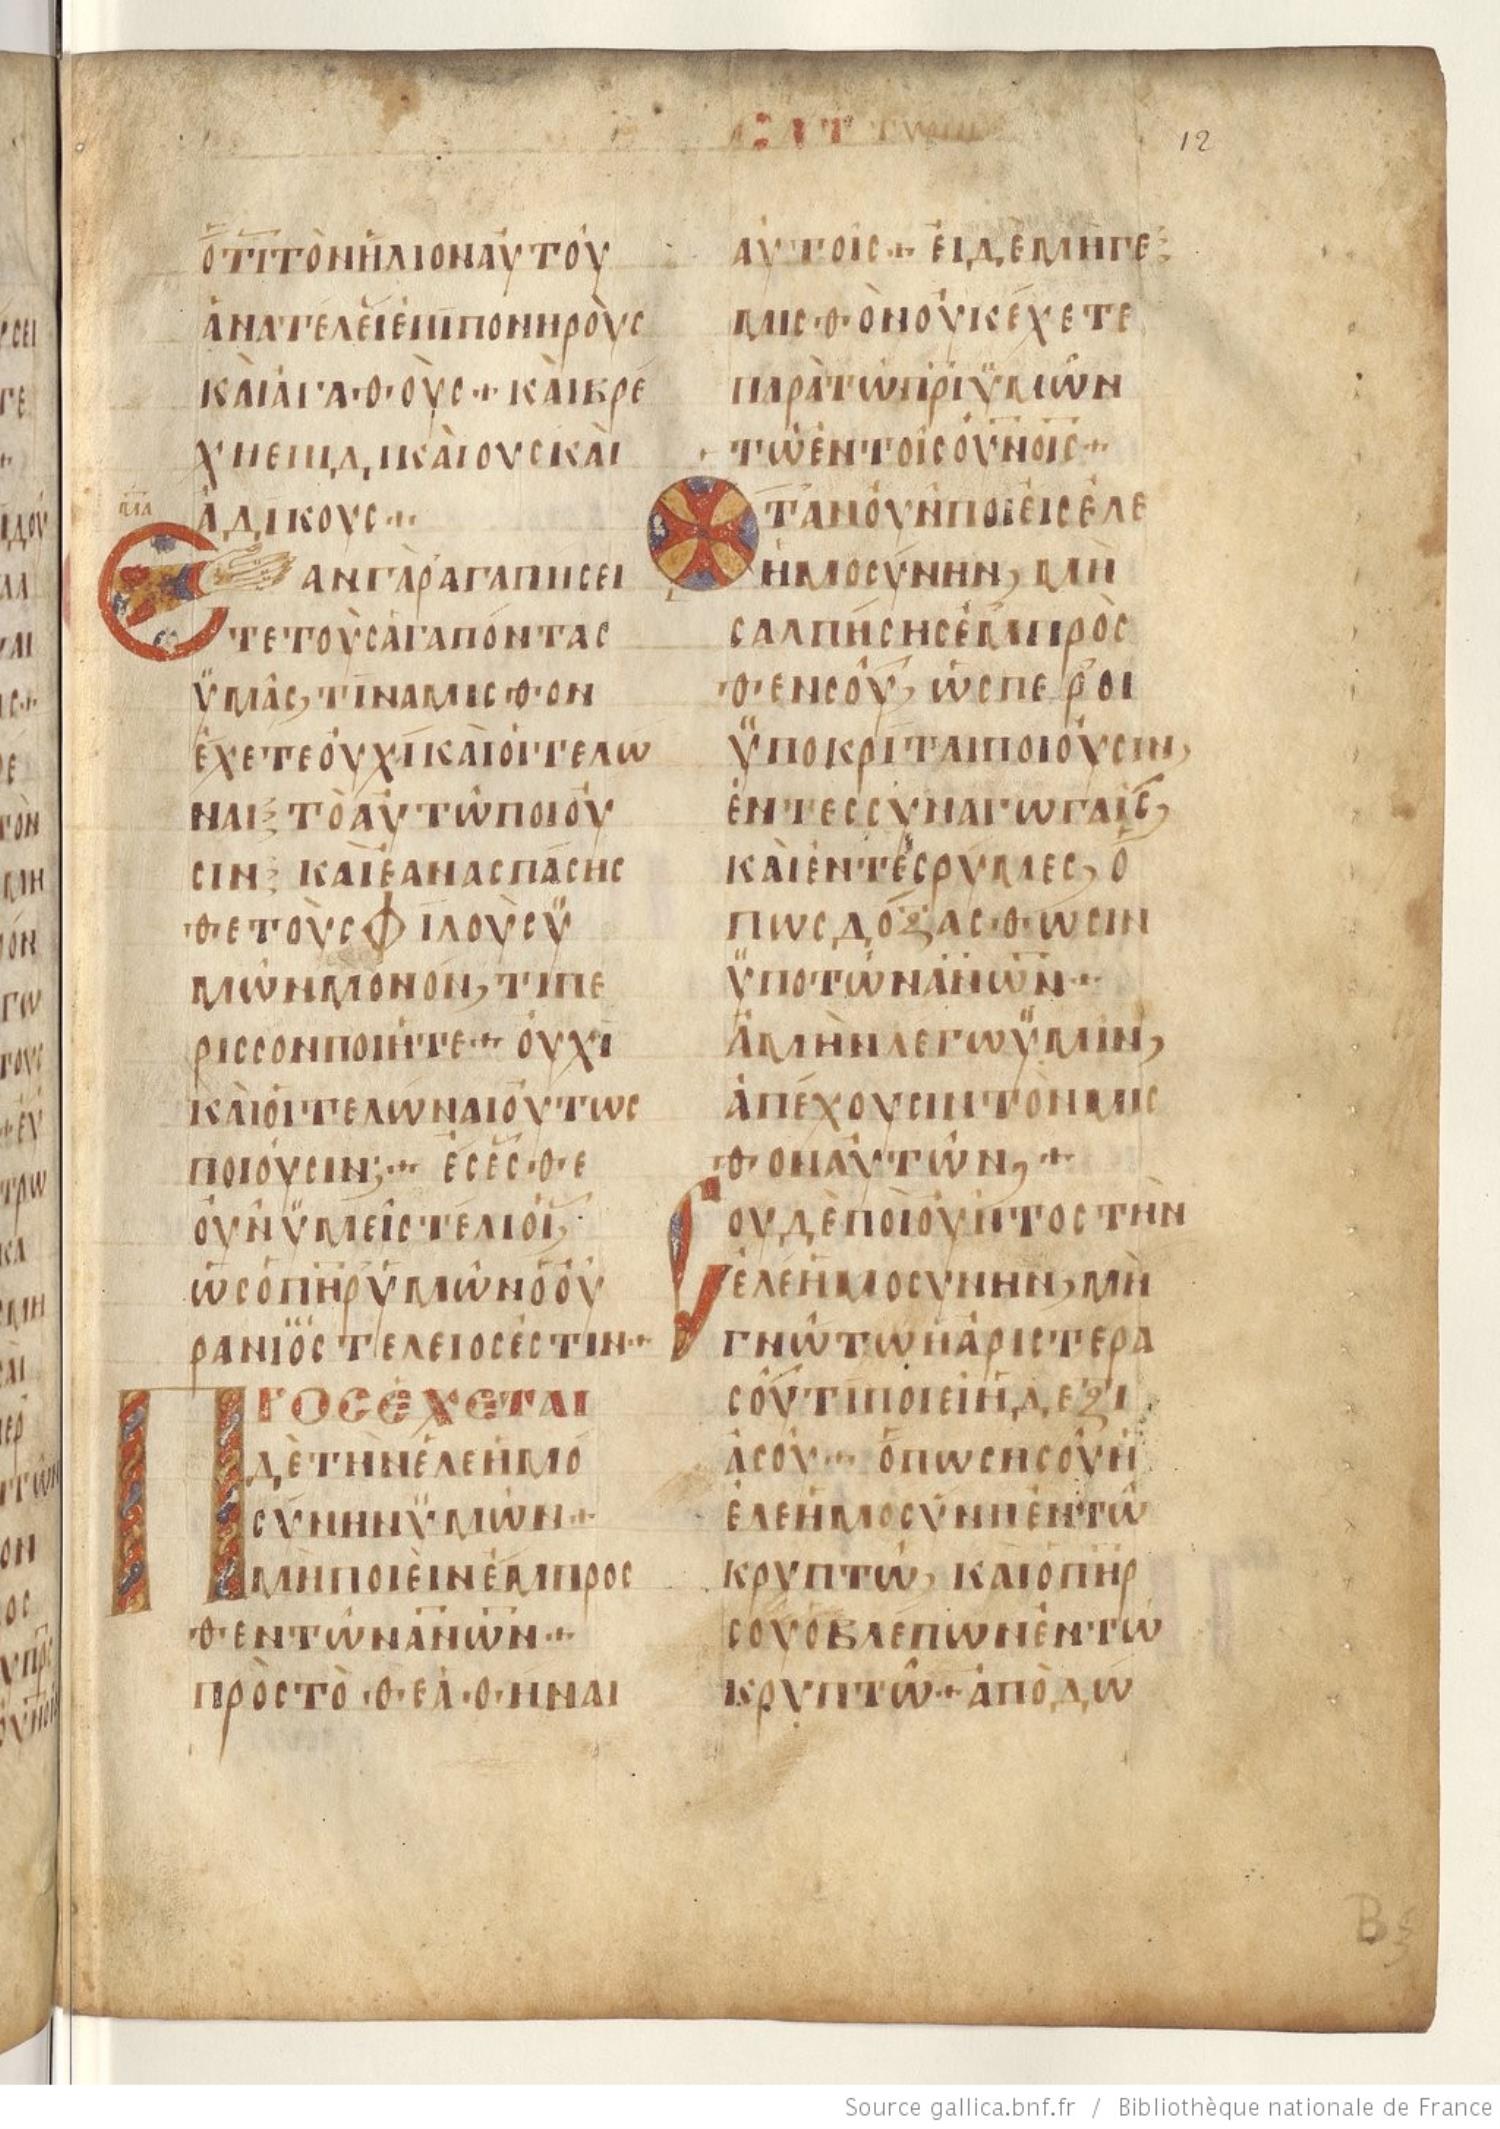 12
ὅτι τὸν ἥλιον αὐτοῦ
ἀνατέλει ἐπι πονηρούς
καὶ ἀγαθούς + καὶ βρέ
χη επι δικαίους καὶ
ἀδίκους +
Ἐὰν γὰρ ἀγαπησει
τε τοὺς ἀγαπόντας
ὑμᾶς, τίνα μισθον
ἔχετε οὐχὶ καὶ οἱ τελω
ναι τὸ αὐτὼ ποιοῦ
σιν καὶ ἐὰν ασπάσησ
θε τοὺς φίλους ὑ
μῶν μόνον, τί πε
ρισσον ποιῆτε + οὐχὶ
καὶ οἱ τελώναι οὕτως
ποιοῦσιν; + ἔσεσθε
οὖν ὑμεῖς τέλιοι,
ὡς ὁ πηρ ὑμῶν ὁ οὐ
ράνιος τέλειος ἐστιν +
Προσέχεται
δὲ τὴν ἐλεημο
σύνην ὑμῶν +
μὴ ποιεὶν ἔμπροσ
θεν τῶν ἀνων +
πρὸς τὸ θεαθῆναι
αὐτοῖς + εἰ δὲ μήγε
μισθὸν οὐκ ἔχετε
παρὰ τῶ πρι ὑμῶν
τῶ ἐν τοῖς οὐνοις +
Ὅταν οὖν ποιεὶς ἐλε
ημοσύνην, μὴ
σαλπήσης ἔμπρὸσ
θεν σοῦ, ὥσπερ οι
ὑποκρίται ποιοῦσιν,
ἐν τες συναγωγαῖς,
καὶ ἐν τὲς ρύμες, ὅ
πως δοξασθωσιν
ὑπο τῶν ἀνων +
Ἀμὴν λέγω ὑμῖν,
ἀπέχουσιν τὸν μισ
θον αὐτῶν, +
Σοῦ δὲ ποιοῦντος τὴν
ἐλεημοσυνην, μὴ
γνώτω ἡ ἀριστερα
σοῦ τί ποιεῖ ἡ δεξι
ά σοῦ + ὅπως ης σοῦ ἡ
ἐλεημοσύνη ἐν τῶ
κρυπτῶ, καὶ ὁ πηρ
σοῦ ὁ βλέπων ἐν τῶ
κρυπτῶ + ἀποδώ
Source gallica.bnf.fr / Bibliothèque nationale de France